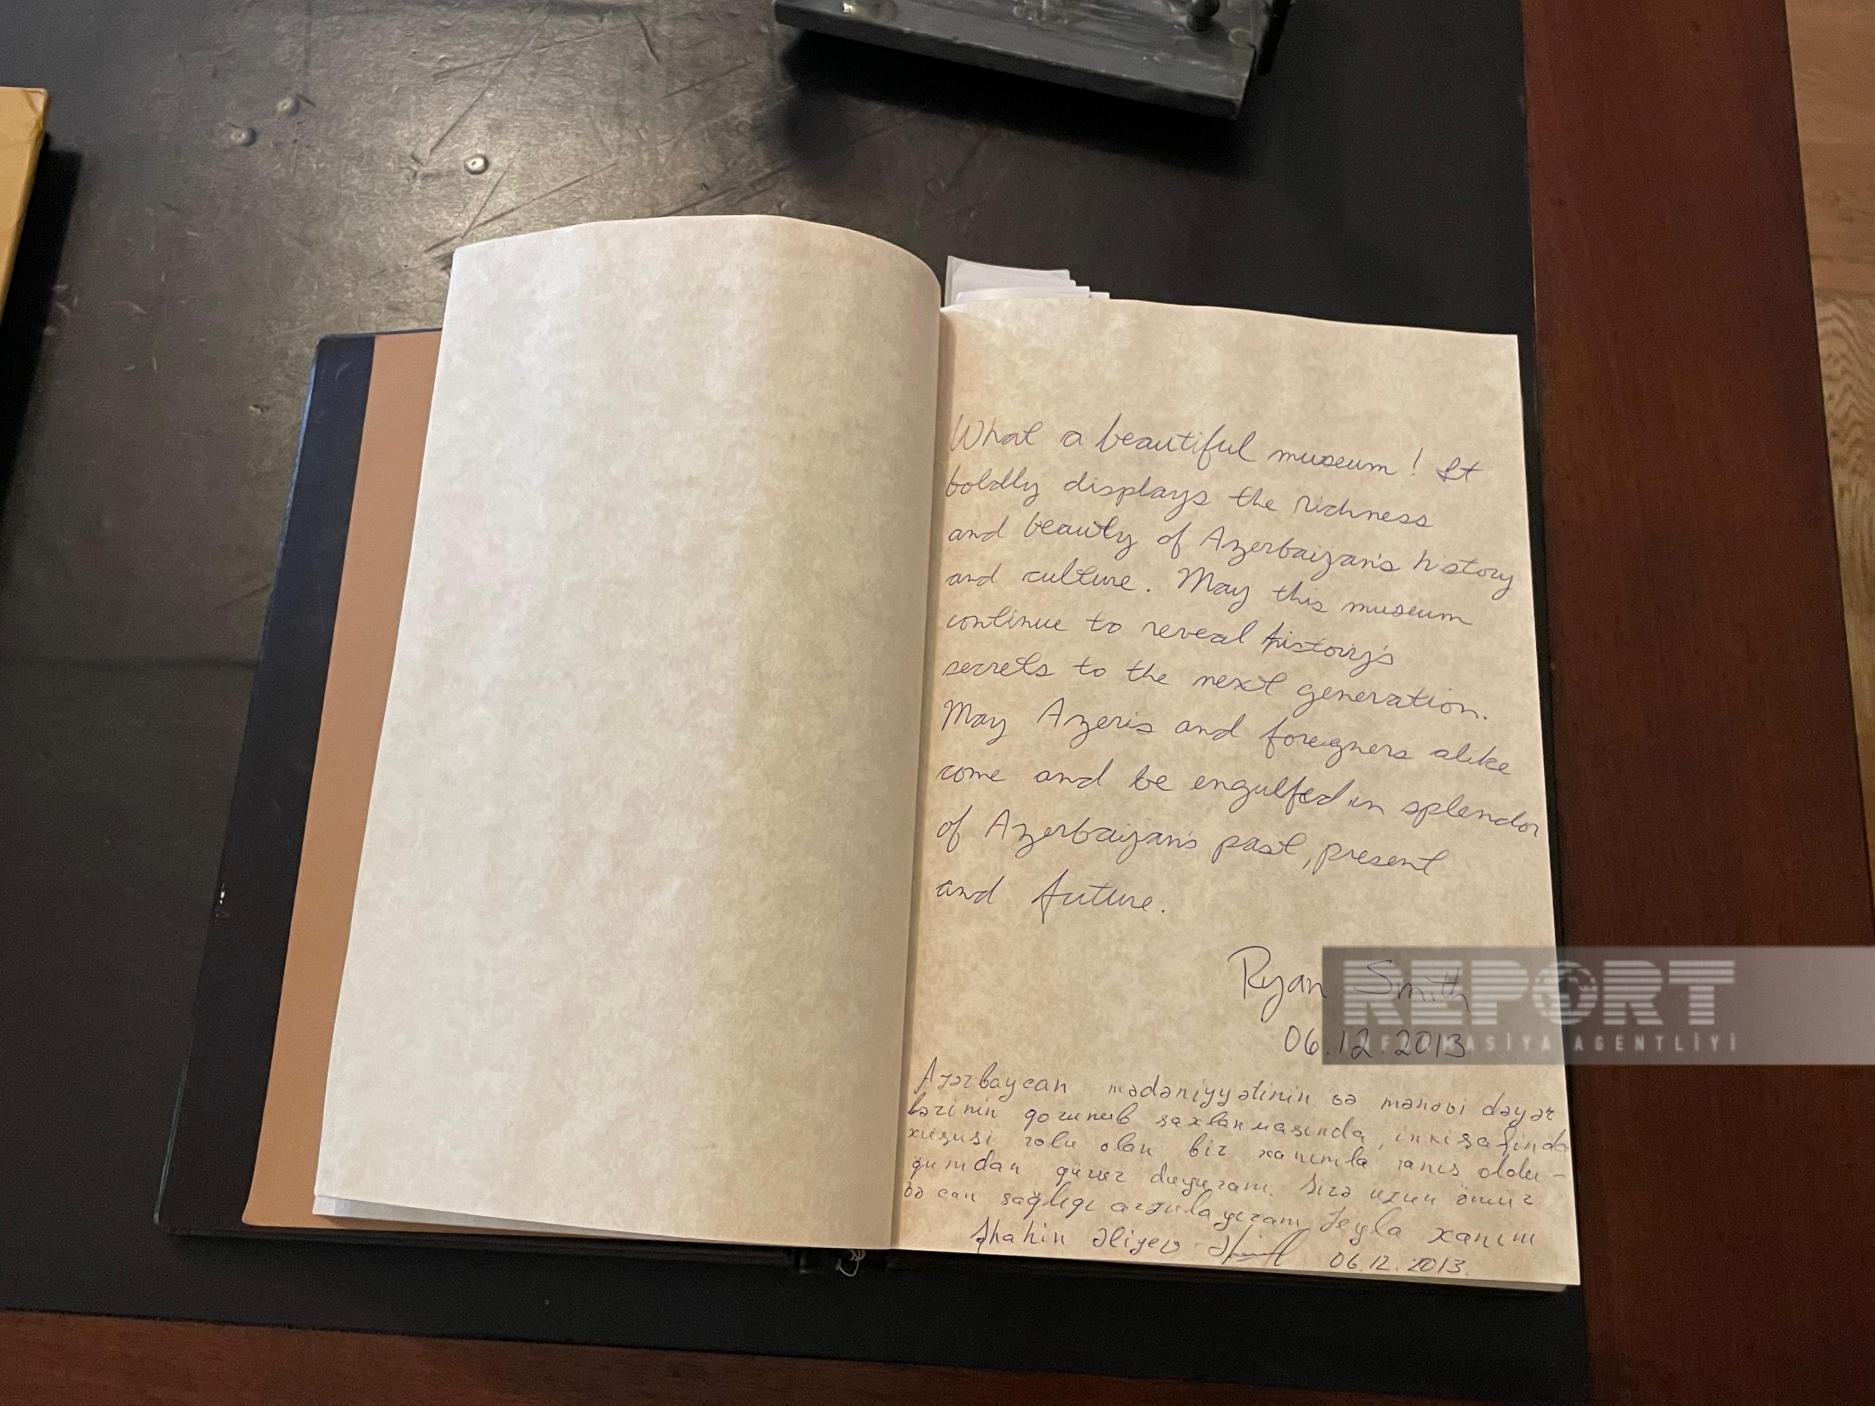 What a beautiful museum! It
boldly displays the richness
and beauty of Azerbaijan's history
and culture. May this museum
continue to reveal history's
secrets to the next generation.
May Azeris and foreigners alike
come and be engulfed in splendor
of Azerbaijan's past, present
and future.
Ryan Smith
06.12.2013
Azərbaycan mədəniyyətinin və mənəvi dəyər
lərinin qorunub saxlanmasında, inkişafında
xüsusi rolu olan bir xanımla tanış oldu-
ğumdan qürur duyuram. Sizə uzun ömür
və can sağlığı arzulayıram Leyla xanım
Shahin Əliyev 06.12.2013.
REPORT
İNFORMASİYA AGENTLİYİ